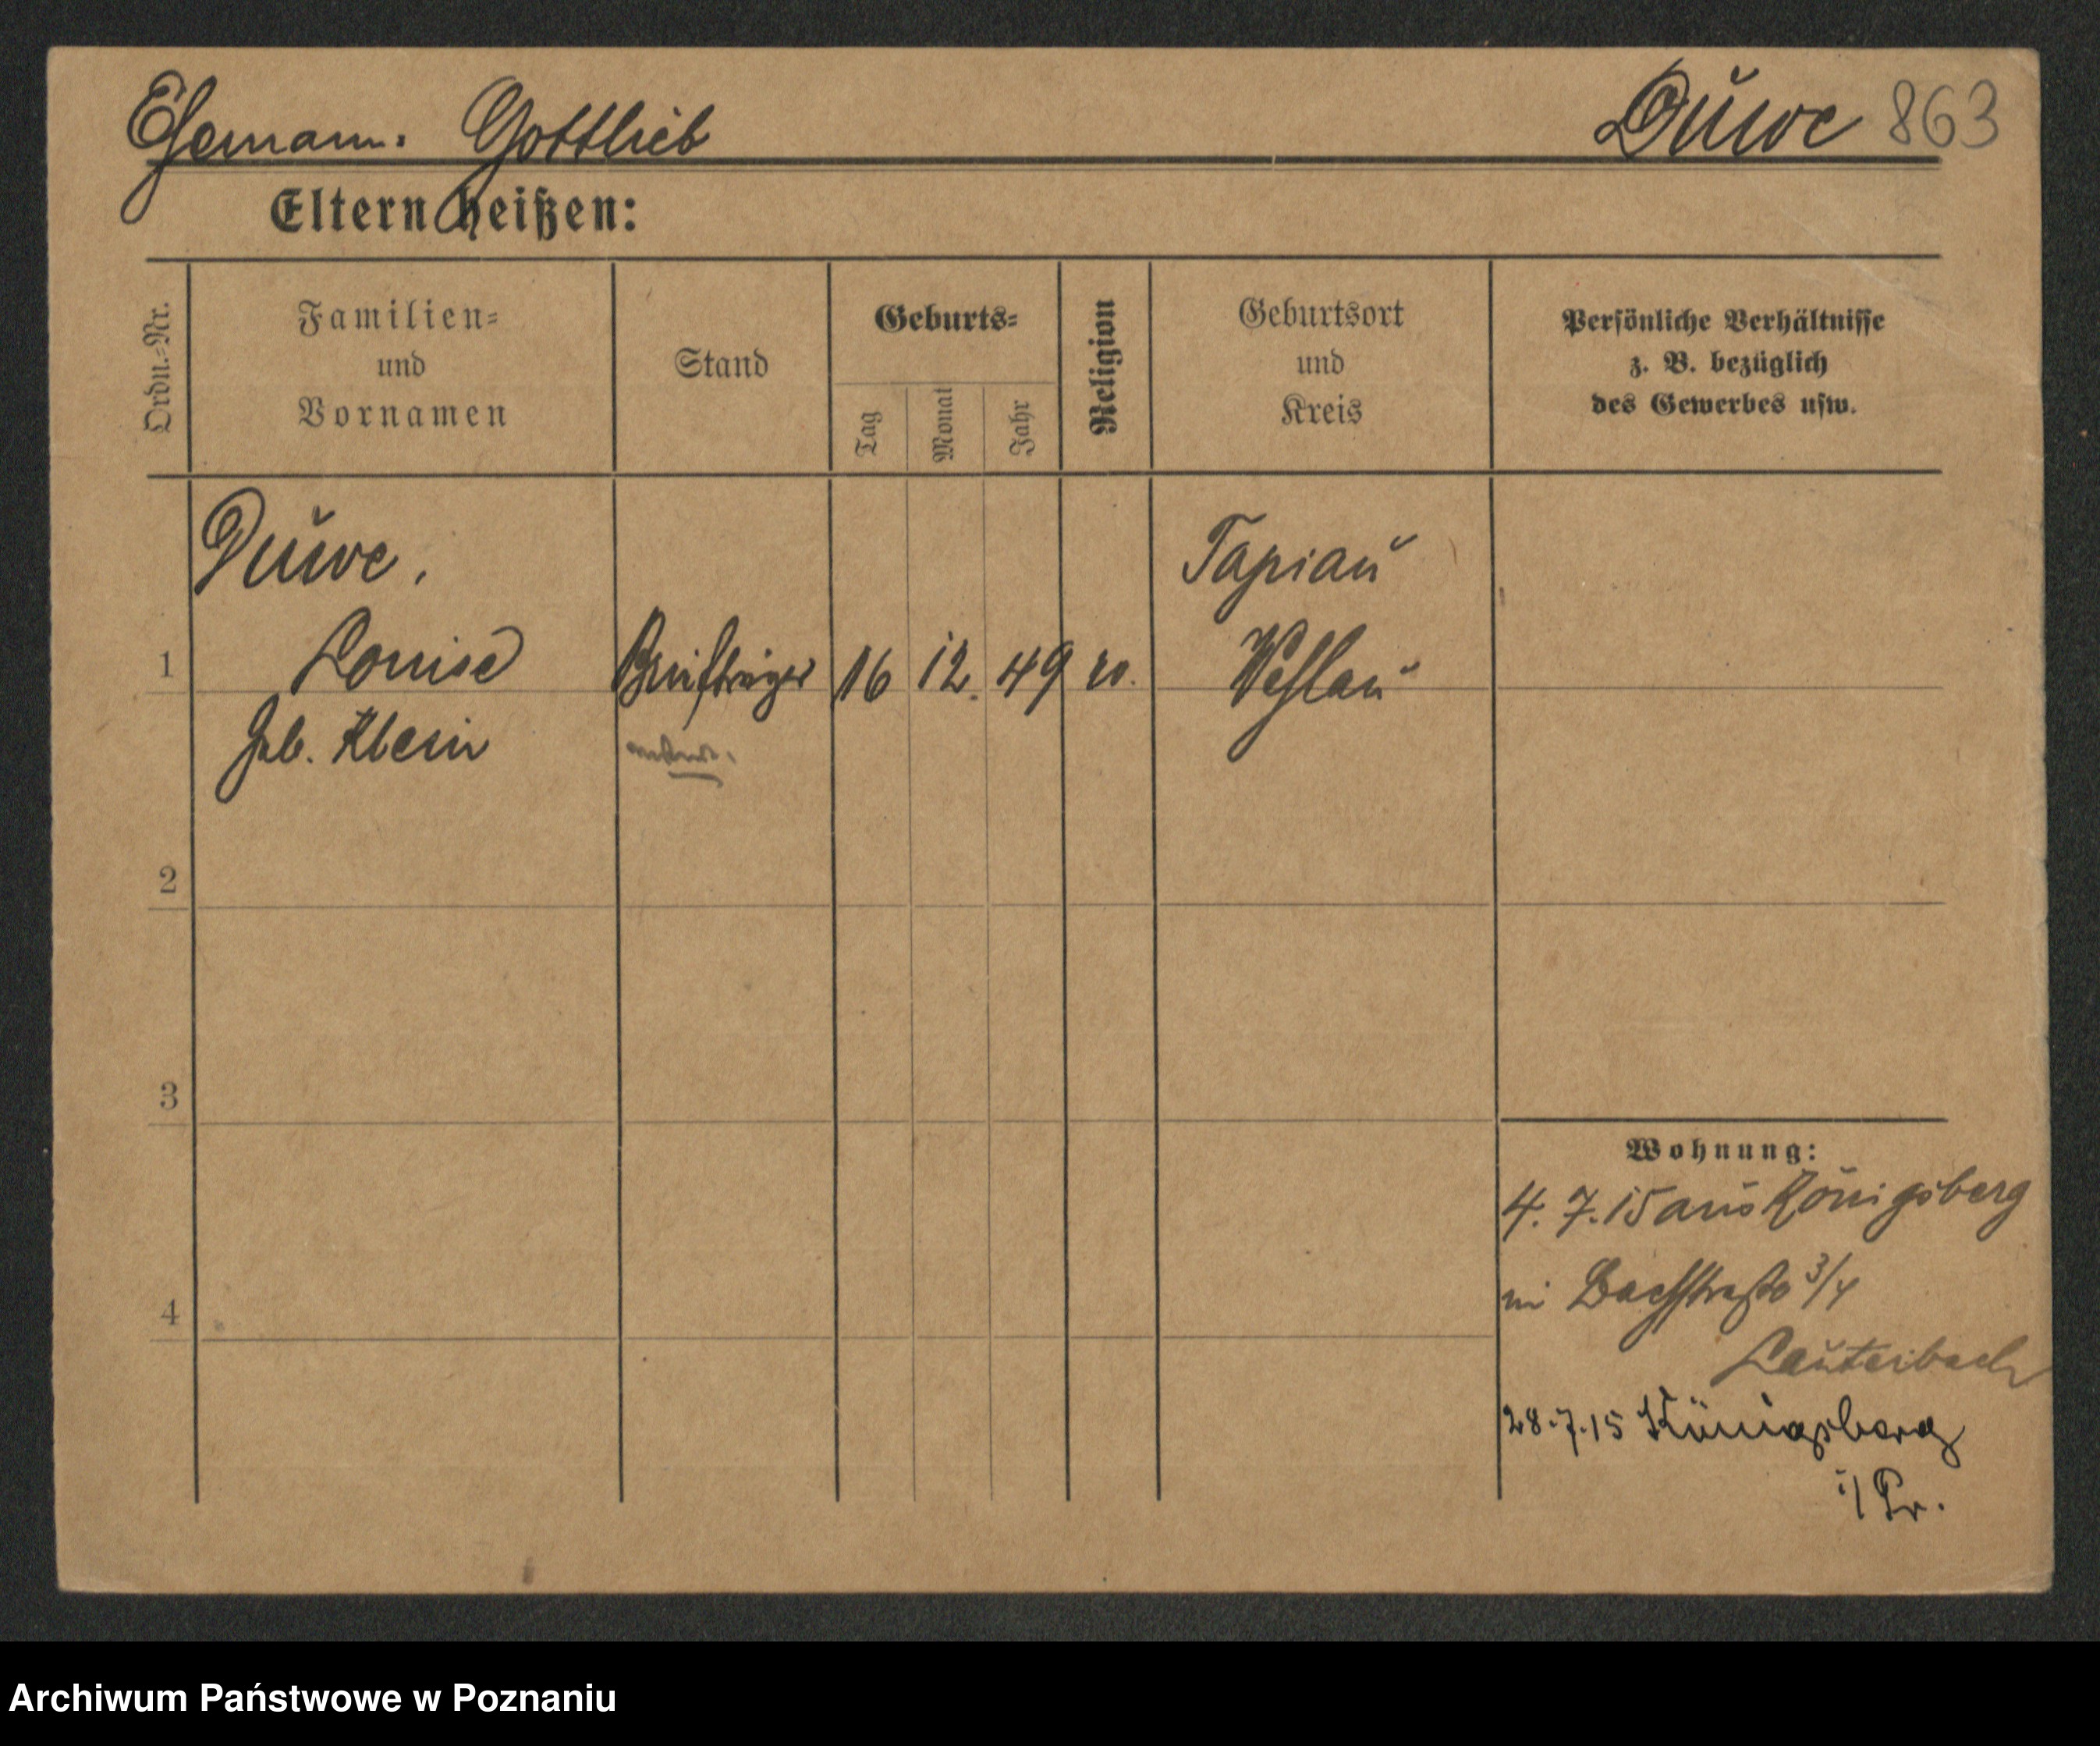 Ehemann: Gottlieb Duwe 863
Eltern heißen:
Ordn.-Nr.
Familien-
und
Vornamen
Stand
Geburts-
Tag
Monat
Jahr
Religion
Geburtsort
und
Kreis
Persönliche Verhältnisse
z. B. bezüglich
des Gewerbes usw.
Duwe, Tapiau
1 Louise Briefträger 16 12. 49 ev. Wehlau
geb. Klein
2
3
4
Wohnung:
4. 7. 15 aus Königsberg
in Bachstraße 3/4
Lauterbach
28.7.15 Königsberg
i/Pr.
Archiwum Państwowe w Poznaniu